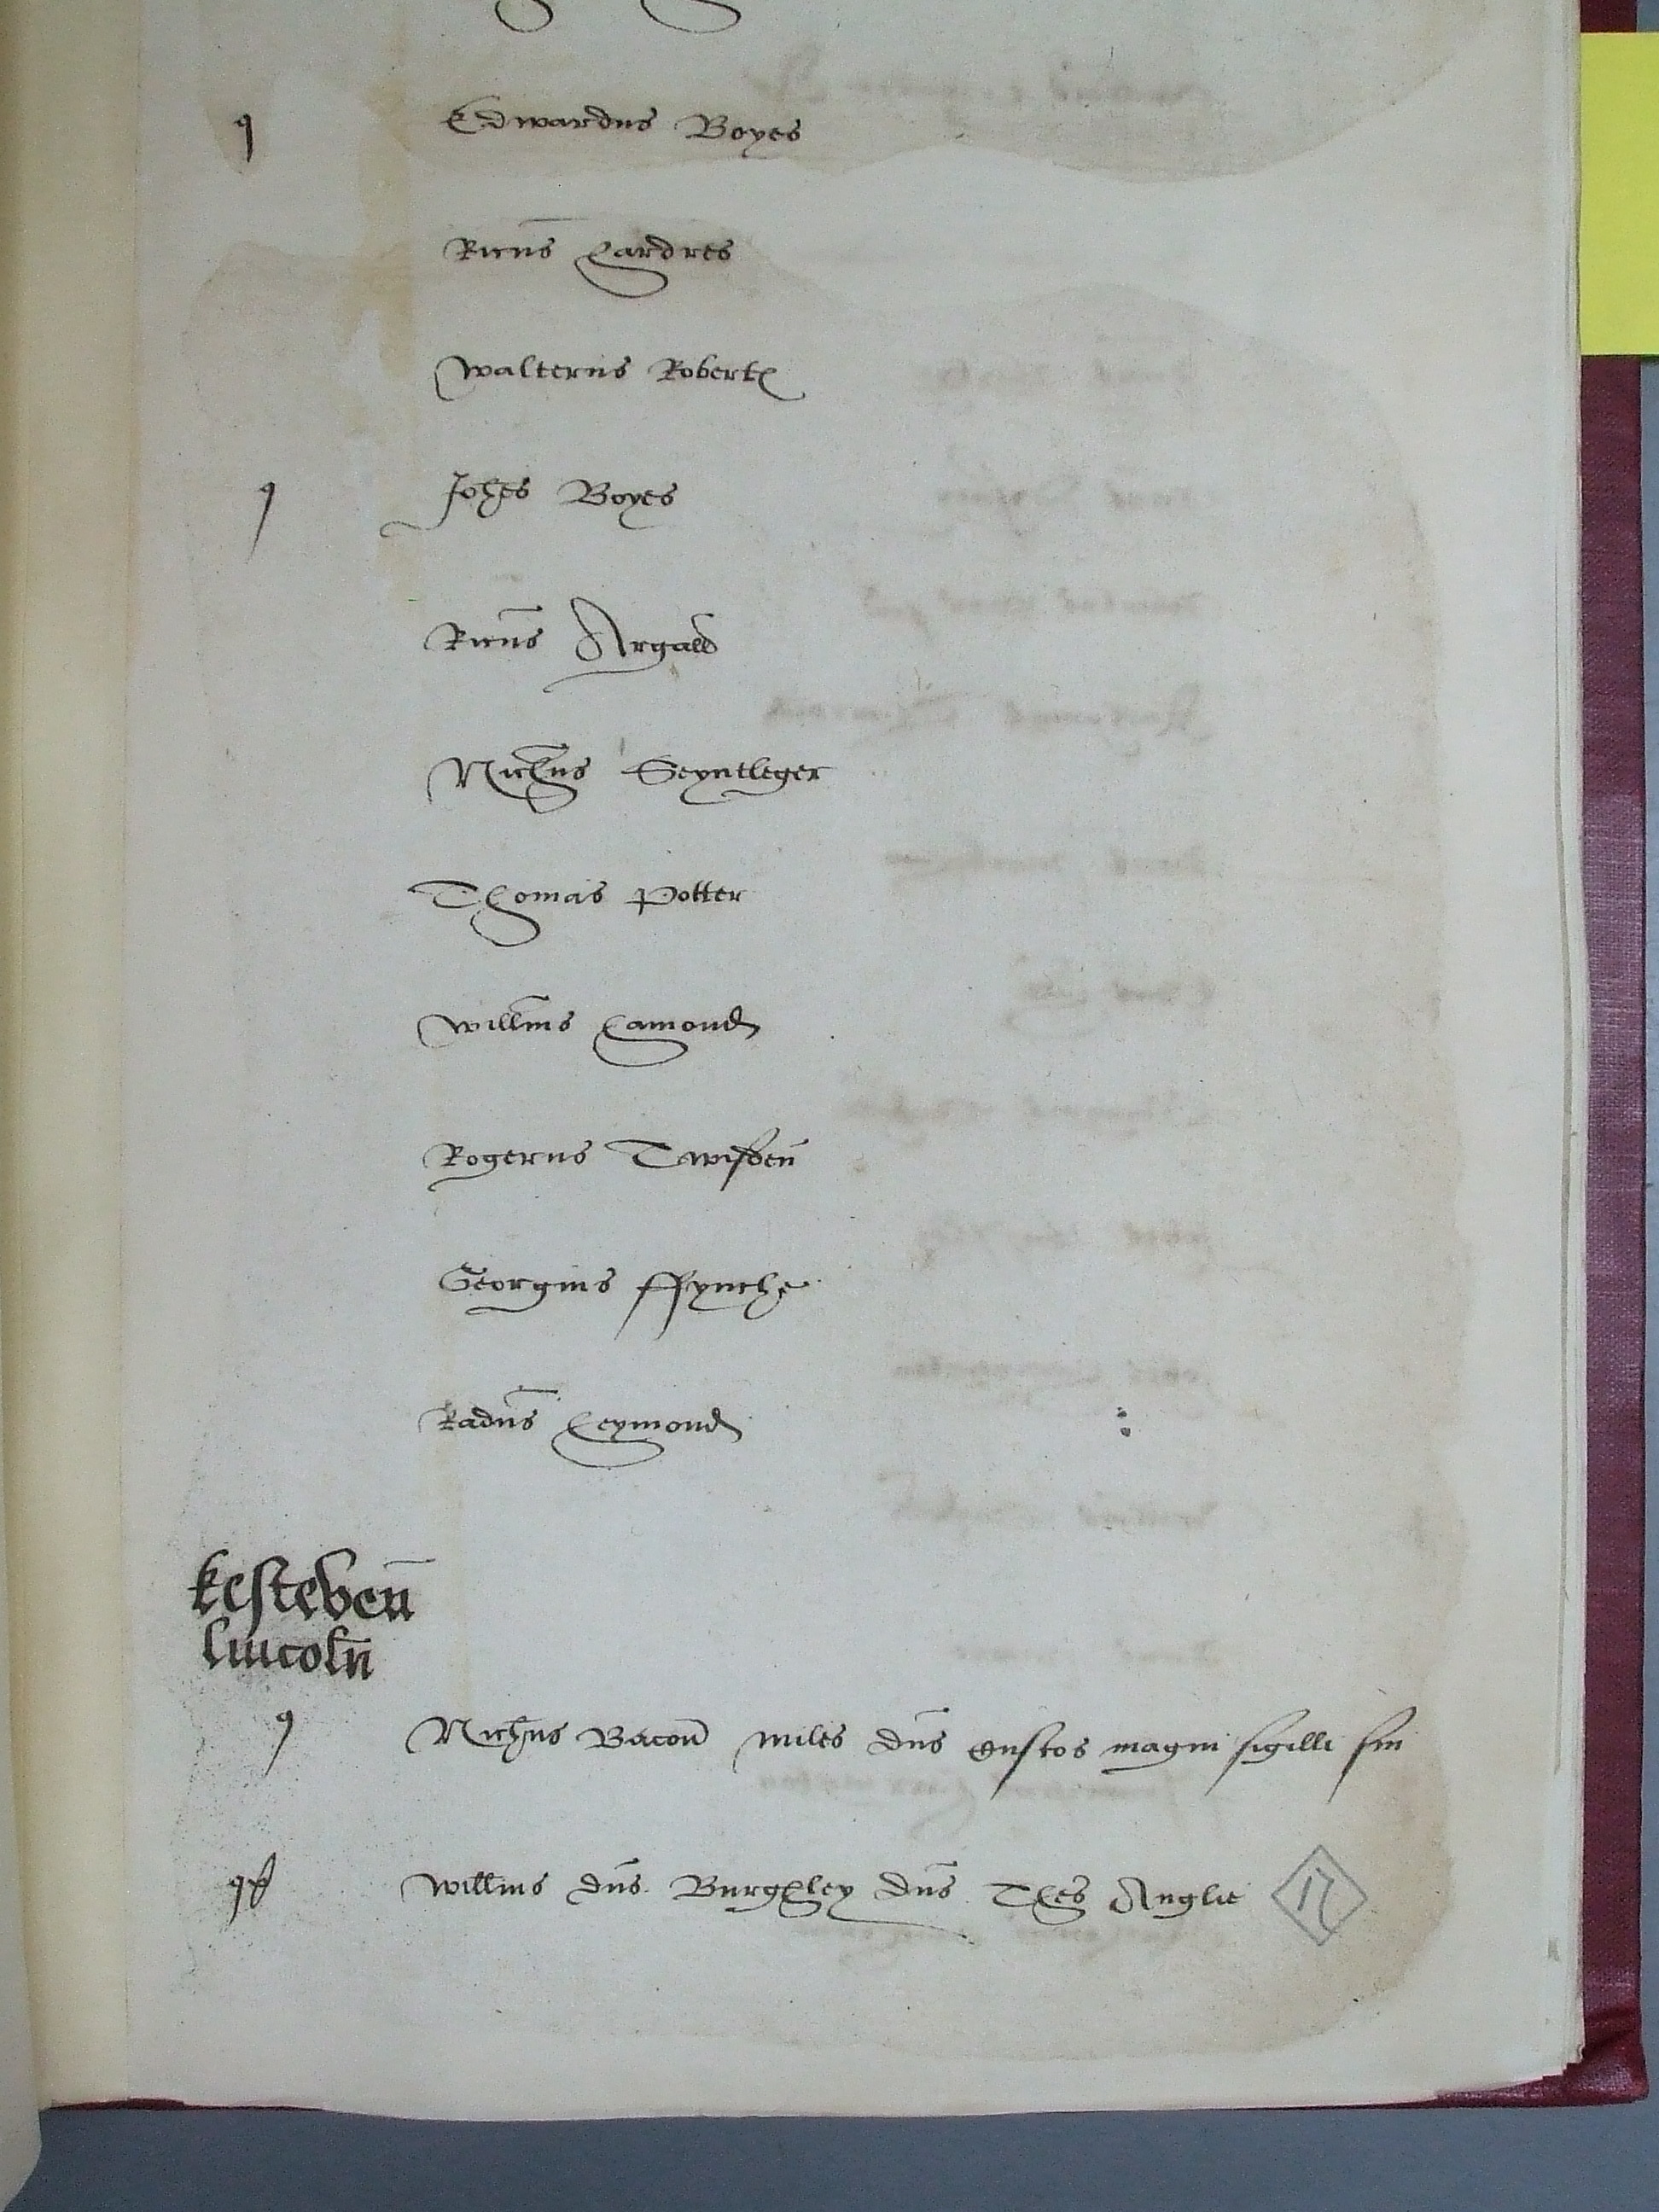 q Edwardus Boyes
Ricus Hardres
Walterus Roberts
q Johes Boyes
Ricus Argall
Nichus Seyntleger
Thomas Potter
Willms Hamond
Rogerus Twisden
Georgius ffynche
Radus Heymond
Kesteven
Lincoln
q Nichus Bacon miles dns Custos magni sigilli sui
q Willms dns Burghley dns Thes Anglie 17